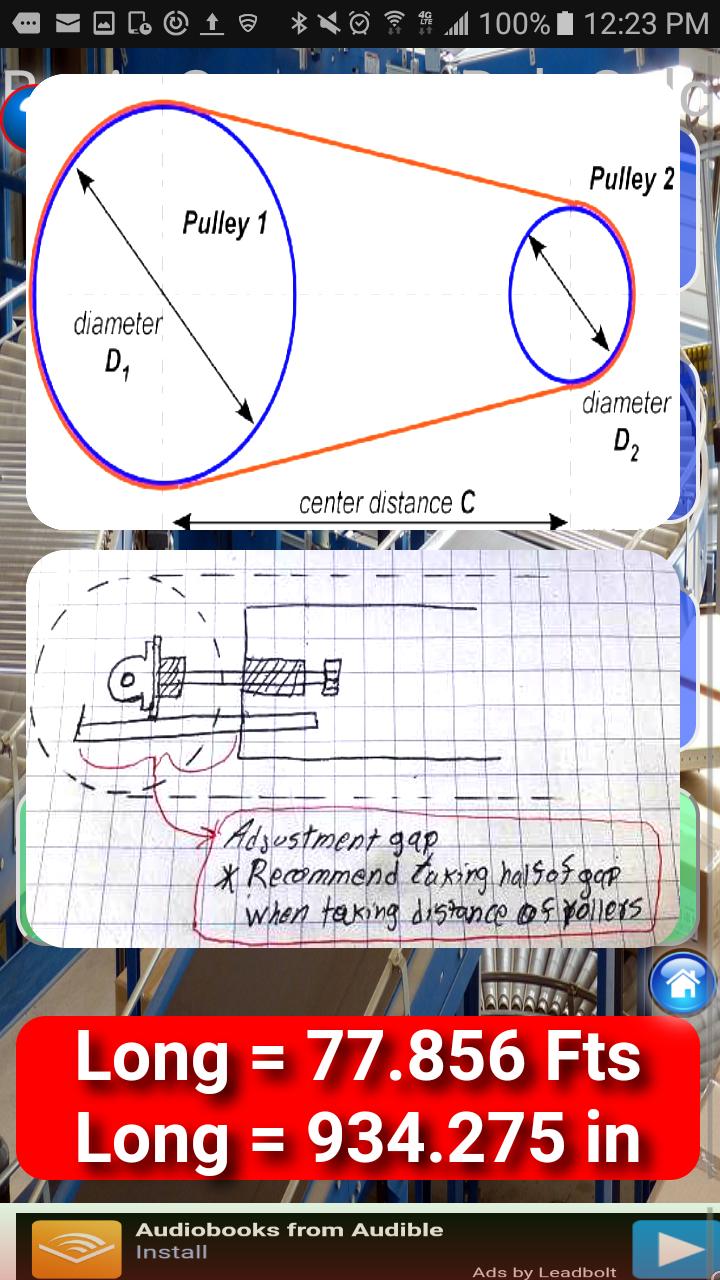 4G
LTE
100%
12:23 PM
Pulley 2
Pulley 1
diameter
D1
diameter
D2
center distance C
Adjustment gap
* Recommend taking half of gap
when taking distance of rollers
Long = 77.856 Fts
Long = 934.275 in
Audiobooks from Audible
Install
Ads by Leadbolt